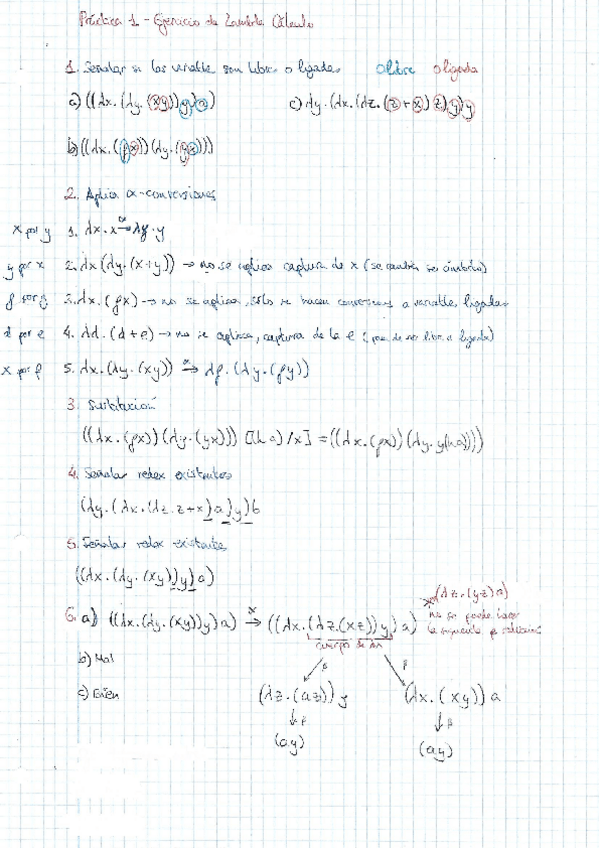 Práctica 1 - Ejercicio de Lambda Cálculo
1. Señalar si las variable son libres o ligadas  O libre  O ligada
a) ((λx.(λy.(xy))y)a)  c) λy.(λx.(λz.(z+x)z)y)y
b) ((λx.(fx))(λy.(yx)))
2. Aplica α-conversiones
x por y  1. λx.x →α λy.y
y por x  2. λx(λy.(x+y)) → no se aplica captura de x (se cambia
f por g  3. λx.(fx) → no se aplica, sólo se hacen conversiones a variable ligadas
d por e  4. λd.(d+e) → no se aplica, captura de la e (pasa de ser libre a ligada)
x por f  5. λx.(λy.(xy)) →α λf.(λy.(fy))
3. Sustitución
((λx.(fx))(λy.(yx))) [(ha)/x] = ((λx.(fx))(λy.y(ha))))
4. Señalar redex existentes
(λy.(λx.(λz.z+x)a)y)b
5. Señalar redex existentes
((λx.(λy.(xy))y)a)
6. a) ((λx.(λy.(xy))y)a) →α ((λx.(λz.(xz))y)a)
(λz.(yz)a)
no se puede hacer
la siguiente β
cuerpo de
b) Mal
β  β
c) Bien  (λz.(az))y  (λx.(xy))a
↓β  ↓β
(ay)  (ay)